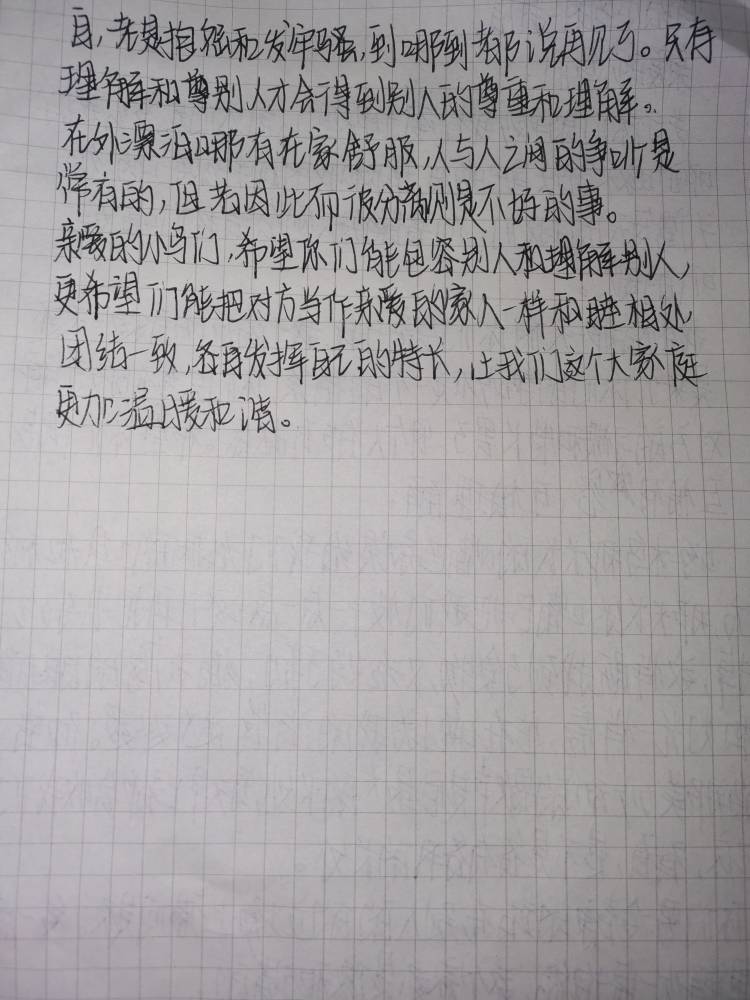 自,老是抱怨和发牢骚,到哪到老都说再见了。只有
理解和尊别人才会得到别人的尊重和理解。
在外漂泊哪有在家舒服,人与人之间的争吵是
常有的,但若因此而彼分离则是不好的事。
亲爱的小鸟们,希望你们能包容别人和理解别人,
更希望们能把对方当作亲爱的家人一样和睦相处
团结一致,各自发挥自己的特长,让我们这个大家庭
更加温暖和谐。